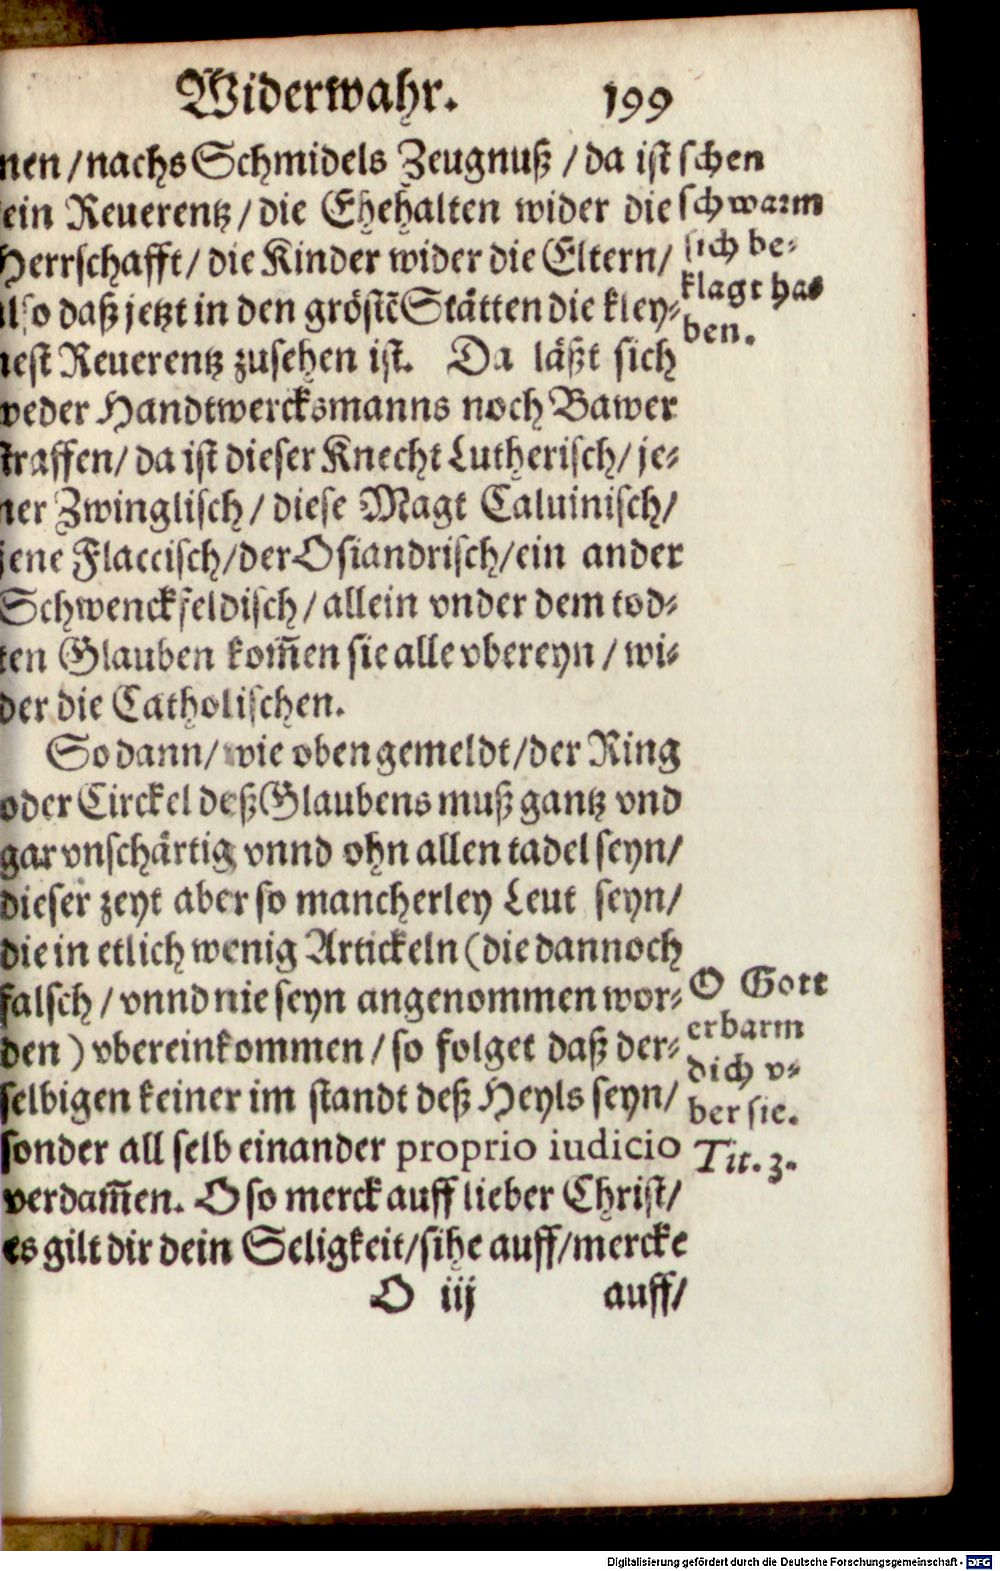 Widerwahr. 199
nen / nachs Schmidels Zeugnuß / da ist
ein Reuerentz / die Ehehalten wider die
Herrschafft / die Kinder wider die Eltern /
also daß jetzt in den gröstē Stätten die kley⸗
nest Reuerentz zusehen ist. Da läßt sich
weder Handtwercksmanns noch Bawer
straffen / da ist dieser Knecht Lutherisch / je⸗
ner Zwinglisch / diese Magt Caluinisch /
jene Flaccisch / der Osiandrisch / ein ander
Schwenckfeldisch / allein vnder dem tod⸗
ten Glauben kom̃en sie alle vbereyn / wi⸗
der die Catholischen.
So dann / wie oben gemeldt / der Ring
oder Circkel deß Glaubens muß gantz vnd
gar vnschärtig vnnd ohn allen tadel seyn /
dieser zeyt aber so mancherley Leut seyn /
die in etlich wenig Artickeln (die dannoch
falsch / vnnd nie seyn angenommen wor⸗
den) vbereinkommen / so folget daß der⸗
selbigen keiner im standt deß Heyls seyn /
sonder all selb einander proprio iudicio
verdam̃en. O so merck auff lieber Christ /
es gilt dir dein Seligkeit / sihe auff / mercke
O iij auff /
schen
schwarm
sich be⸗
klagt ha⸗
ben.
O Gott
erbarm
dich v⸗
ber sie.
Tit. 3.
Digitalisierung gefördert durch die Deutsche Forschungsgemeinschaft - DFG